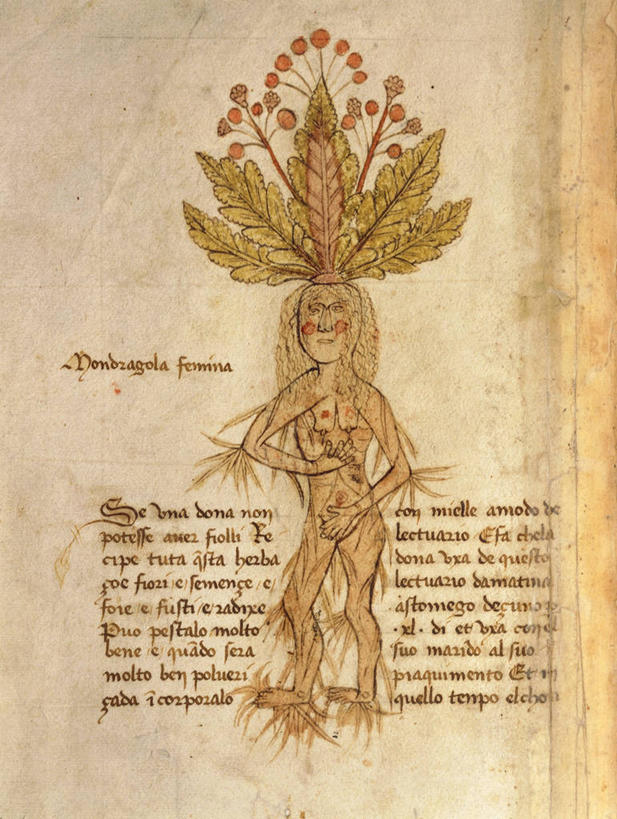 Mondragola femina
Se vna dona non
potesse auer fiolli Re
cipe tuta q̃sta herba
çoe fiori e semençe e
foie e fusti e radixe
Puo pestalo molto
bene e quãdo sera
molto ben polueri
çada ĩcorporalo
con mielle amodo de
lectuario Efa chela
dona vxa de questo
lectuario damatina
astomego deçuno
·xl· di et vxa con el
suo marido al suo
piaquimento Et
quello tenpo el